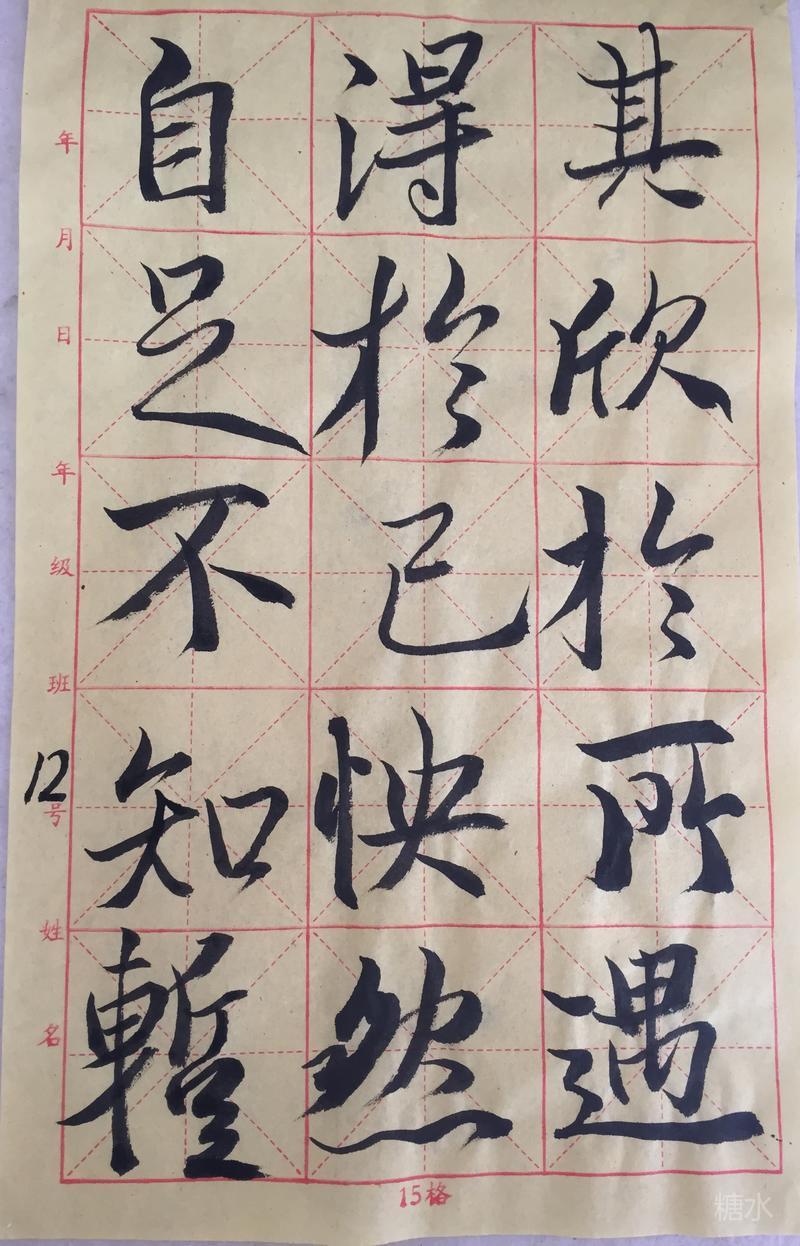 其欣於所遇
得於己怏然
自足不知蹔
年月日年级班12号姓名
15格
糖水